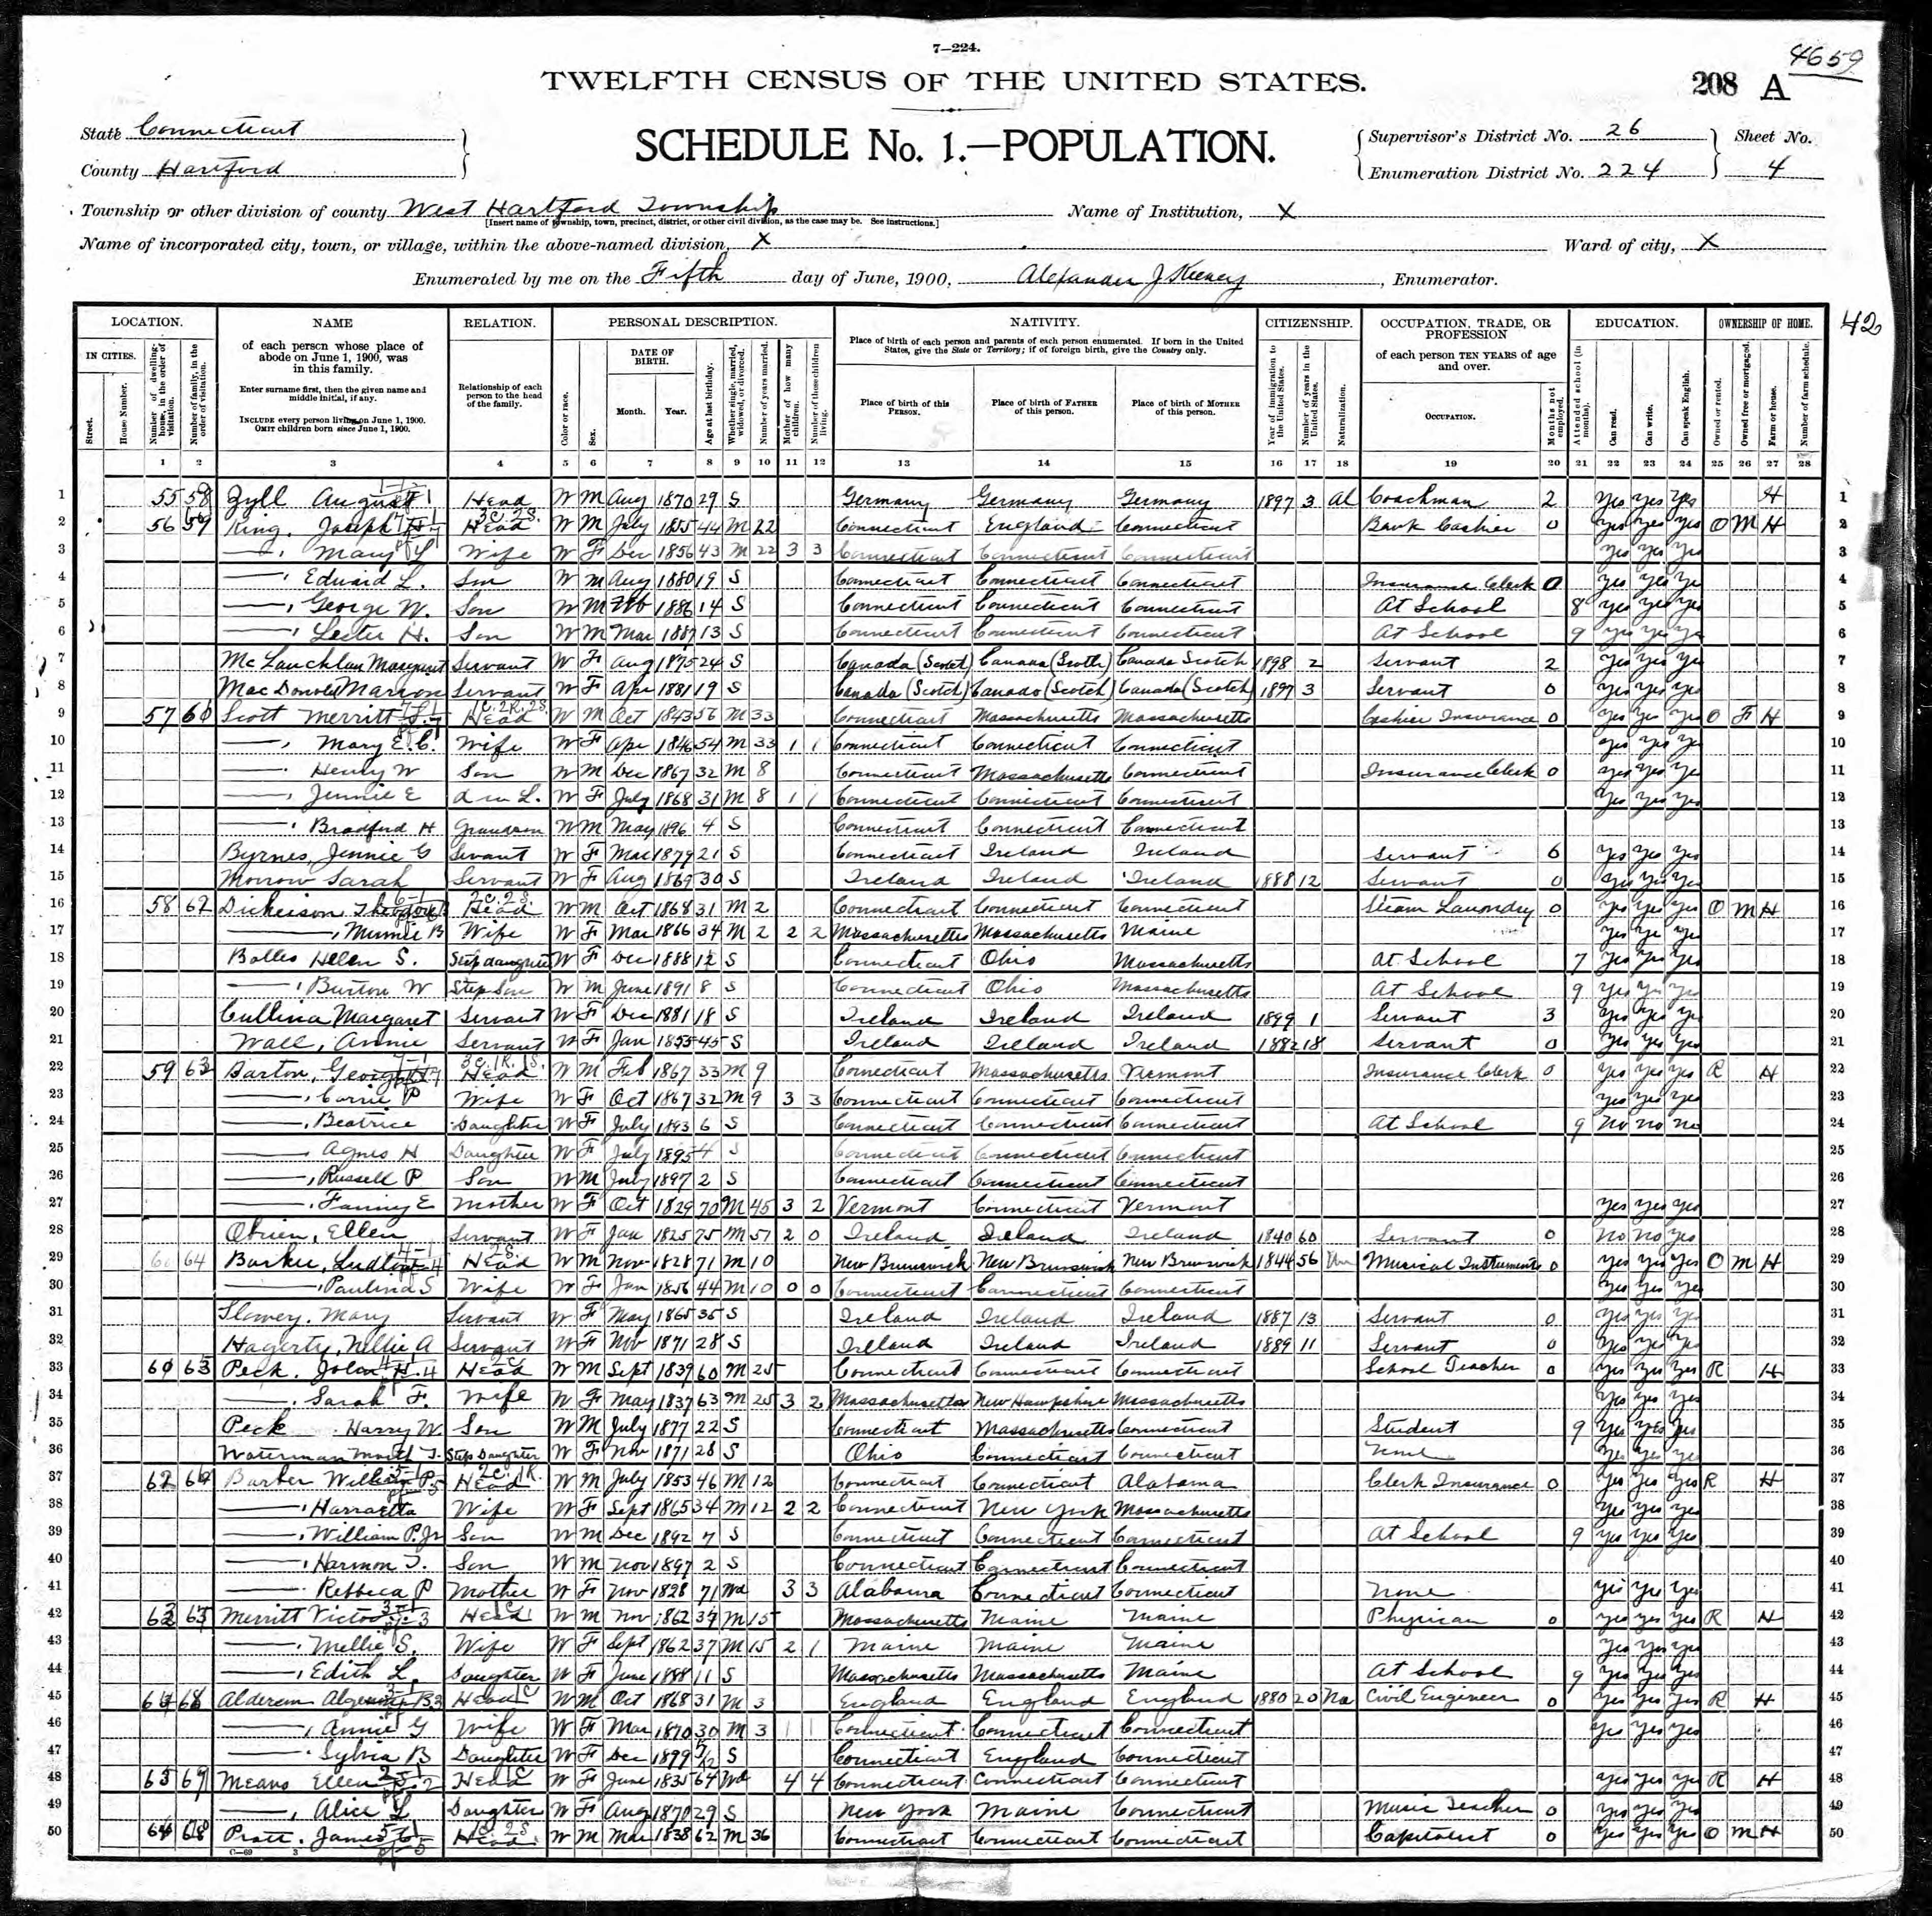 7—224.
4659
TWELFTH CENSUS OF THE UNITED STATES.
208 A
State Connecticut
County Hartford
SCHEDULE No. 1.—POPULATION.
Supervisor's District No. 26
Enumeration District No. 224
Sheet No. 4
Township or other division of county West Hartford Township
[Insert name of township, town, precinct, district, or other civil division, as the case may be. See instructions.]
Name of Institution, X
Name of incorporated city, town, or village, within the above-named division, X
Ward of city, X
Enumerated by me on the Fifth day of June, 1900, Alexander J Keeney, Enumerator.
42
LOCATION. NAME RELATION. PERSONAL DESCRIPTION. NATIVITY. CITIZENSHIP. OCCUPATION, TRADE, OR PROFESSION EDUCATION. OWNERSHIP OF HOME.
IN CITIES. Street. House Number. Number of dwelling-house, in the order of visitation. Number of family, in the order of visitation.
of each person whose place of abode on June 1, 1900, was in this family.
Enter surname first, then the given name and middle initial, if any.
INCLUDE every person living on June 1, 1900. OMIT children born since June 1, 1900.
Relationship of each person to the head of the family.
Color or race. Sex. DATE OF BIRTH. Month. Year. Age at last birthday. Whether single, married, widowed, or divorced. Number of years married. Mother of how many children. Number of these children living.
Place of birth of each person and parents of each person enumerated. If born in the United States, give the State or Territory; if of foreign birth, give the Country only.
Place of birth of this PERSON. Place of birth of FATHER of this person. Place of birth of MOTHER of this person.
Year of immigration to the United States. Number of years in the United States. Naturalization.
of each person TEN YEARS of age and over.
OCCUPATION. Months not employed.
Attended school (in months). Can read. Can write. Can speak English.
Owned or rented. Owned free or mortgaged. Farm or house. Number of farm schedule.
1 2 3 4 5 6 7 8 9 10 11 12 13 14 15 16 17 18 19 20 21 22 23 24 25 26 27 28
1 55 58 Zyll August Head W M Aug 1870 29 S Germany Germany Germany 1897 3 Al Coachman 2 Yes Yes Yes H 1
2 56 59 King, Joseph H Head W M July 1855 44 M 22 Connecticut England Connecticut Bank Cashier 0 Yes Yes Yes O M H 2
3 —, Mary L Wife W F Dec 1856 43 M 22 3 3 Connecticut Connecticut Connecticut Yes Yes Yes 3
4 —, Edward L. Son W M Aug 1880 19 S Connecticut Connecticut Connecticut Insurance Clerk 0 Yes Yes Ye 4
5 —, George W. Son W M Feb 1886 14 S Connecticut Connecticut Connecticut At School 8 Yes Yes Yes 5
6 —, Lester H. Son W M Mar 1887 13 S Connecticut Connecticut Connecticut At School 9 Yes Yes Yes 6
7 McLauchlan Margaret Servant W F Aug 1875 24 S Canada (Scotch) Canada (Scotch) Canada Scotch 1898 2 Servant 2 Yes Yes Yes 7
8 MacDonold Marion Servant W F Apr 1881 19 S Canada (Scotch) Canada (Scotch) Canada (Scotch) 1897 3 Servant 0 Yes Yes Yes 8
9 57 60 Scott Merritt Head W M Oct 1843 56 M 33 Connecticut Massachusetts Massachusetts Cashier Insurance 0 Yes Yes Yes O F H 9
10 —, Mary E. C. Wife W F Apr 1846 54 M 33 1 1 Connecticut Connecticut Connecticut Yes Yes Yes 10
11 — Henry W Son W M Dec 1867 32 M 8 Connecticut Massachusetts Connecticut Insurance Clerk 0 Yes Yes Yes 11
12 —, Jennie E D in L. W F July 1868 31 M 8 1 1 Connecticut Connecticut Connecticut Yes Yes Yes 12
13 —, Bradford H Grandson W M May 1896 4 S Connecticut Connecticut Connecticut 13
14 Byrnes, Jennie G Servant W F Mar 1879 21 S Connecticut Ireland Ireland Servant 6 Yes Yes Yes 14
15 Morrow Sarah Servant W F Aug 1869 30 S Ireland Ireland Ireland 1888 12 Servant 0 Yes Yes Yes 15
16 58 62 Dickerson Theodore Head W M Oct 1868 31 M 2 Connecticut Connecticut Connecticut Steam Laundry 0 Yes Yes Yes O M H 16
17 —, Minnie B Wife W F Mar 1866 34 M 2 2 2 Massachusetts Massachusetts Maine Yes Ye Yes 17
18 Bolles Helen S. Step daughter W F Dec 1888 12 S Connecticut Ohio Massachusetts At School 7 Yes Yes Yes 18
19 —, Burton W Step Son W M June 1891 8 S Connecticut Ohio Massachusetts At School 9 Yes Yes Yes 19
20 Cullina Margaret Servant W F Dec 1881 18 S Ireland Ireland Ireland 1899 1 Servant 3 Yes Yes Yes 20
21 Wall, Annie Servant W F Jan 1855 45 S Ireland Ireland Ireland 1882 18 Servant 0 Yes Yes Yes 21
22 59 63 Barton, George Head W M Feb 1867 33 M 9 Connecticut Massachusetts Vermont Insurance Clerk 0 Yes Yes Yes R H 22
23 —, Carrie P Wife W F Oct 1867 32 M 9 3 3 Connecticut Connecticut Connecticut Yes Yes Yes 23
24 —, Beatrice Daughter W F July 1893 6 S Connecticut Connecticut Connecticut At School 9 No no no 24
25 — Agnes H Daughter W F July 1895 4 S Connecticut Connecticut Connecticut 25
26 —, Russell P Son W M July 1897 2 S Connecticut Connecticut Connecticut 26
27 —, Fanny E Mother W F Oct 1829 70 M 45 3 2 Vermont Connecticut Vermont Yes Yes Yes 27
28 Obrien, Ellen Servant W F Jan 1825 75 M 57 2 0 Ireland Ireland Ireland 1840 60 Servant 0 No No Yes 28
29 64 Barker, Ludlow Head W M Nov 1828 71 M 10 New Brunswick New Brunswick New Brunswick 1844 56 Musical Instruments 0 Yes Yes Yes O M H 29
30 —, Paulina S Wife W F Jan 1856 44 M 10 0 0 Connecticut Connecticut Connecticut Yes Yes Yes 30
31 Mary Servant W F May 1865 35 S Ireland Ireland Ireland 1887 13 Servant 0 Yes Yes Yes 31
32 Hagerty, Nellie A Servant W F Nov 1871 28 S Ireland Ireland Ireland 1889 11 Servant 0 Yes Yes Yes 32
33 61 65 Peck, John H. Head W M Sept 1839 60 M 25 Connecticut Connecticut Connecticut School Teacher 0 Yes Yes Yes R H 33
34 —, Sarah F. Wife W F May 1837 63 M 25 3 2 Massachusetts New Hampshire Massachusetts Yes Yes Yes 34
35 Peck Harry W Son W M July 1877 22 S Connecticut Massachusetts Connecticut Student 9 Yes Yes Yes 35
36 Waterman Step Daughter W F Nov 1871 28 S Ohio Connecticut Connecticut None Yes Yes Yes 36
37 62 Barber William P. Head W M July 1853 46 M 12 Connecticut Connecticut Alabama Clerk Insurance 0 Yes Yes Yes R H 37
38 —, Harraetta Wife W F Sept 1865 34 M 12 2 2 Connecticut New York Massachusetts Yes Yes Yes 38
39 —, William P. Jr Son W M Dec 1892 7 S Connecticut Connecticut Connecticut At School 9 Yes Yes Yes 39
40 —, Harmon T. Son W M Nov 1897 2 S Connecticut Connecticut Connecticut 40
41 — Rebbeca P Mother W F Nov 1828 71 Wd 3 3 Alabama Connecticut Connecticut None Yes Yes Yes 41
42 Merritt Victor Head W M Nov 1862 37 M 15 Massachusetts Maine Maine Physician 0 Yes Yes Yes R H 42
43 —, Mellie S. Wife W F Sept 1862 37 M 15 2 1 Maine Maine Maine Yes Yes Yes 43
44 —, Edith L. Daughter W F June 1888 11 S Massachusetts Massachusetts Maine At School 9 Yes Yes Yes 44
45 Head W M Oct 1868 31 M 3 England England England 1880 20 Na Civil Engineer 0 Yes Yes Yes R H 45
46 —, Annie G Wife W F Mar 1870 30 M 3 1 1 Connecticut Connecticut Connecticut Yes Yes Yes 46
47 — Sylvia B Daughter W F Dec 1899 5/12 S Connecticut England Connecticut 47
48 Means Ellen Head W F June 1835 64 Wd 4 4 Connecticut Connecticut Connecticut Yes Yes Yes R H 48
49 —, Alice L Daughter W F Aug 1870 29 S New York Maine Connecticut Music Teacher 0 Yes Yes Yes 49
50 Pratt, James Head W M Mar 1838 62 M 36 Connecticut Connecticut Connecticut Capitalist 0 Yes Yes Yes O M H 50
C—69 3